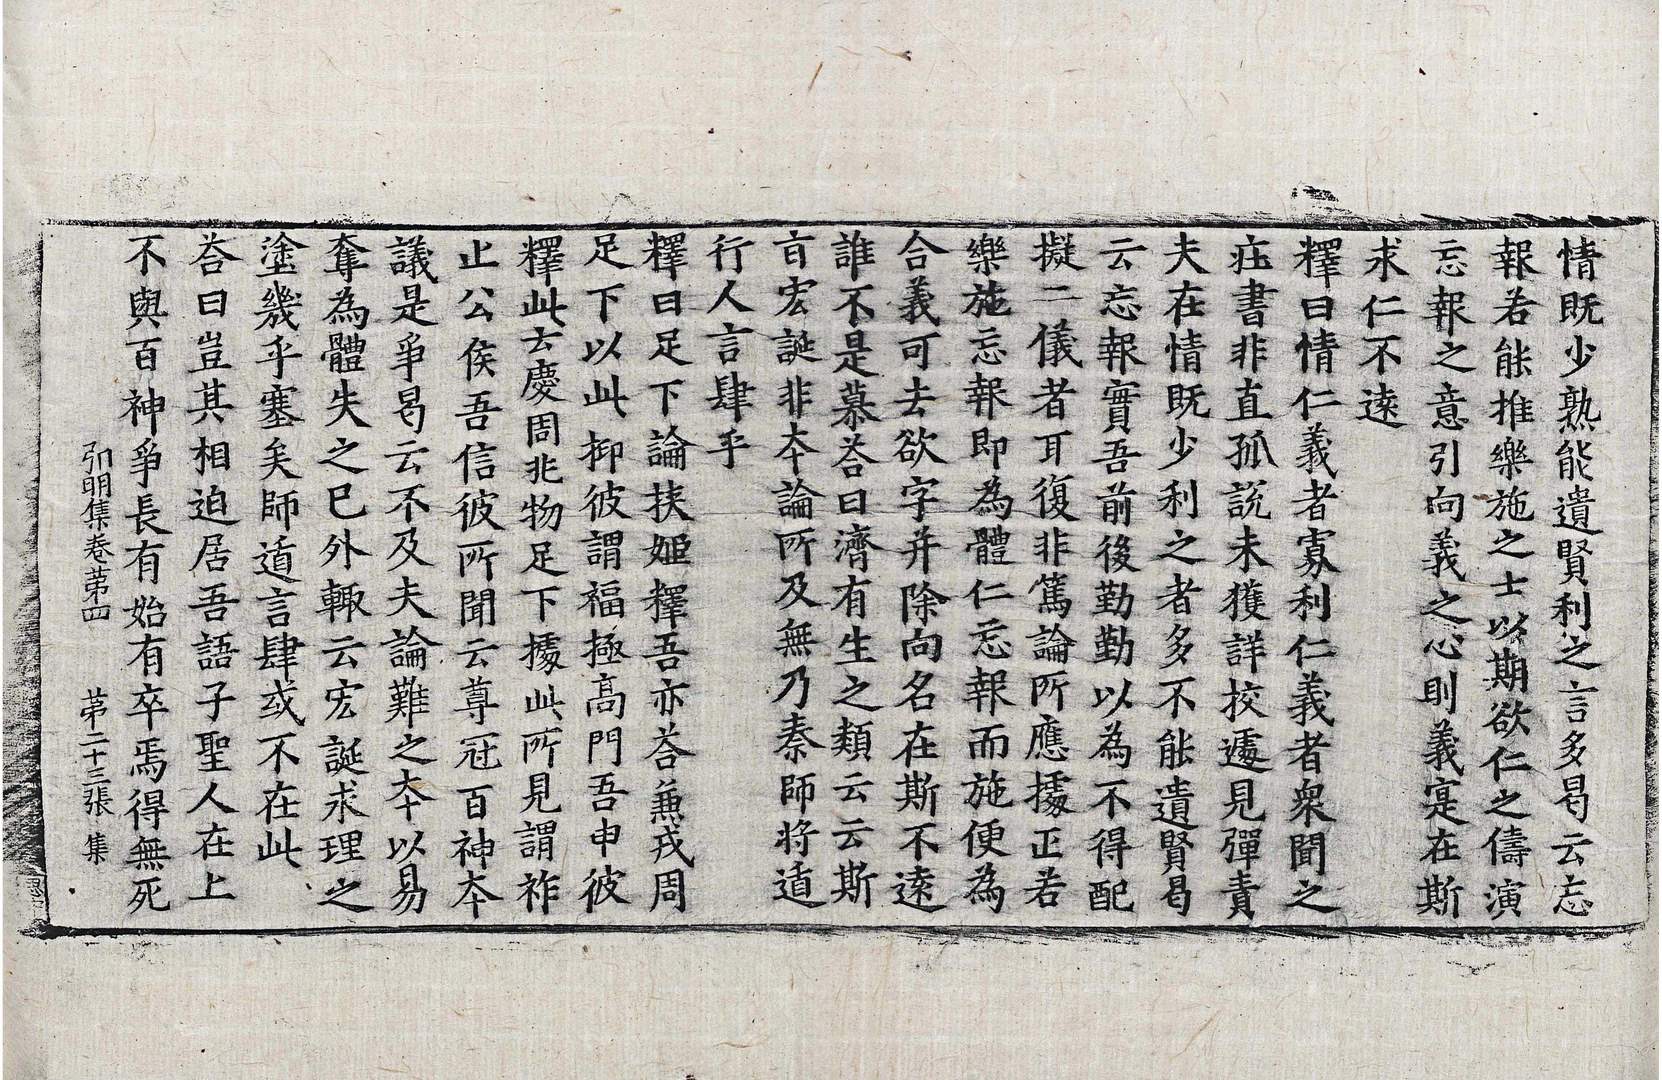 情旣少熟能遺賢利之言多曷云忘
報若能推樂施之士以期欲仁之儔演
忘報之意引向義之心則義寔在斯
求仁不遠
釋曰情仁義者寡利仁義者衆聞之
莊書非直孤說未獲詳挍遽見彈責
夫在情旣少利之者多不能遺賢曷
云忘報實吾前後勤勤以為不得配
擬二儀者耳復非篤論所應據正若
樂施忘報即為體仁忘報而施便為
合義可去欲字并除向名在斯不遠
誰不是慕荅曰濟有生之類云云斯
言宏誕非本論所及無乃秦師將遁
行人言肆乎
釋曰足下論挾姬釋吾亦荅兼戎周
足下以此抑彼謂福極高門吾申彼
釋此去慶周兆物足下據此所見謂祚
止公侯吾信彼所聞云尊冠百神本
議是爭曷云不及夫論難之本以易
奪為體失之已外輙云宏誕求理之
塗幾乎塞矣師遁言肆或不在此
荅曰豈其相迫居吾語子聖人在上
不與百神爭長有始有卒焉得無死
弘明集卷苐四　苐二十三張　集